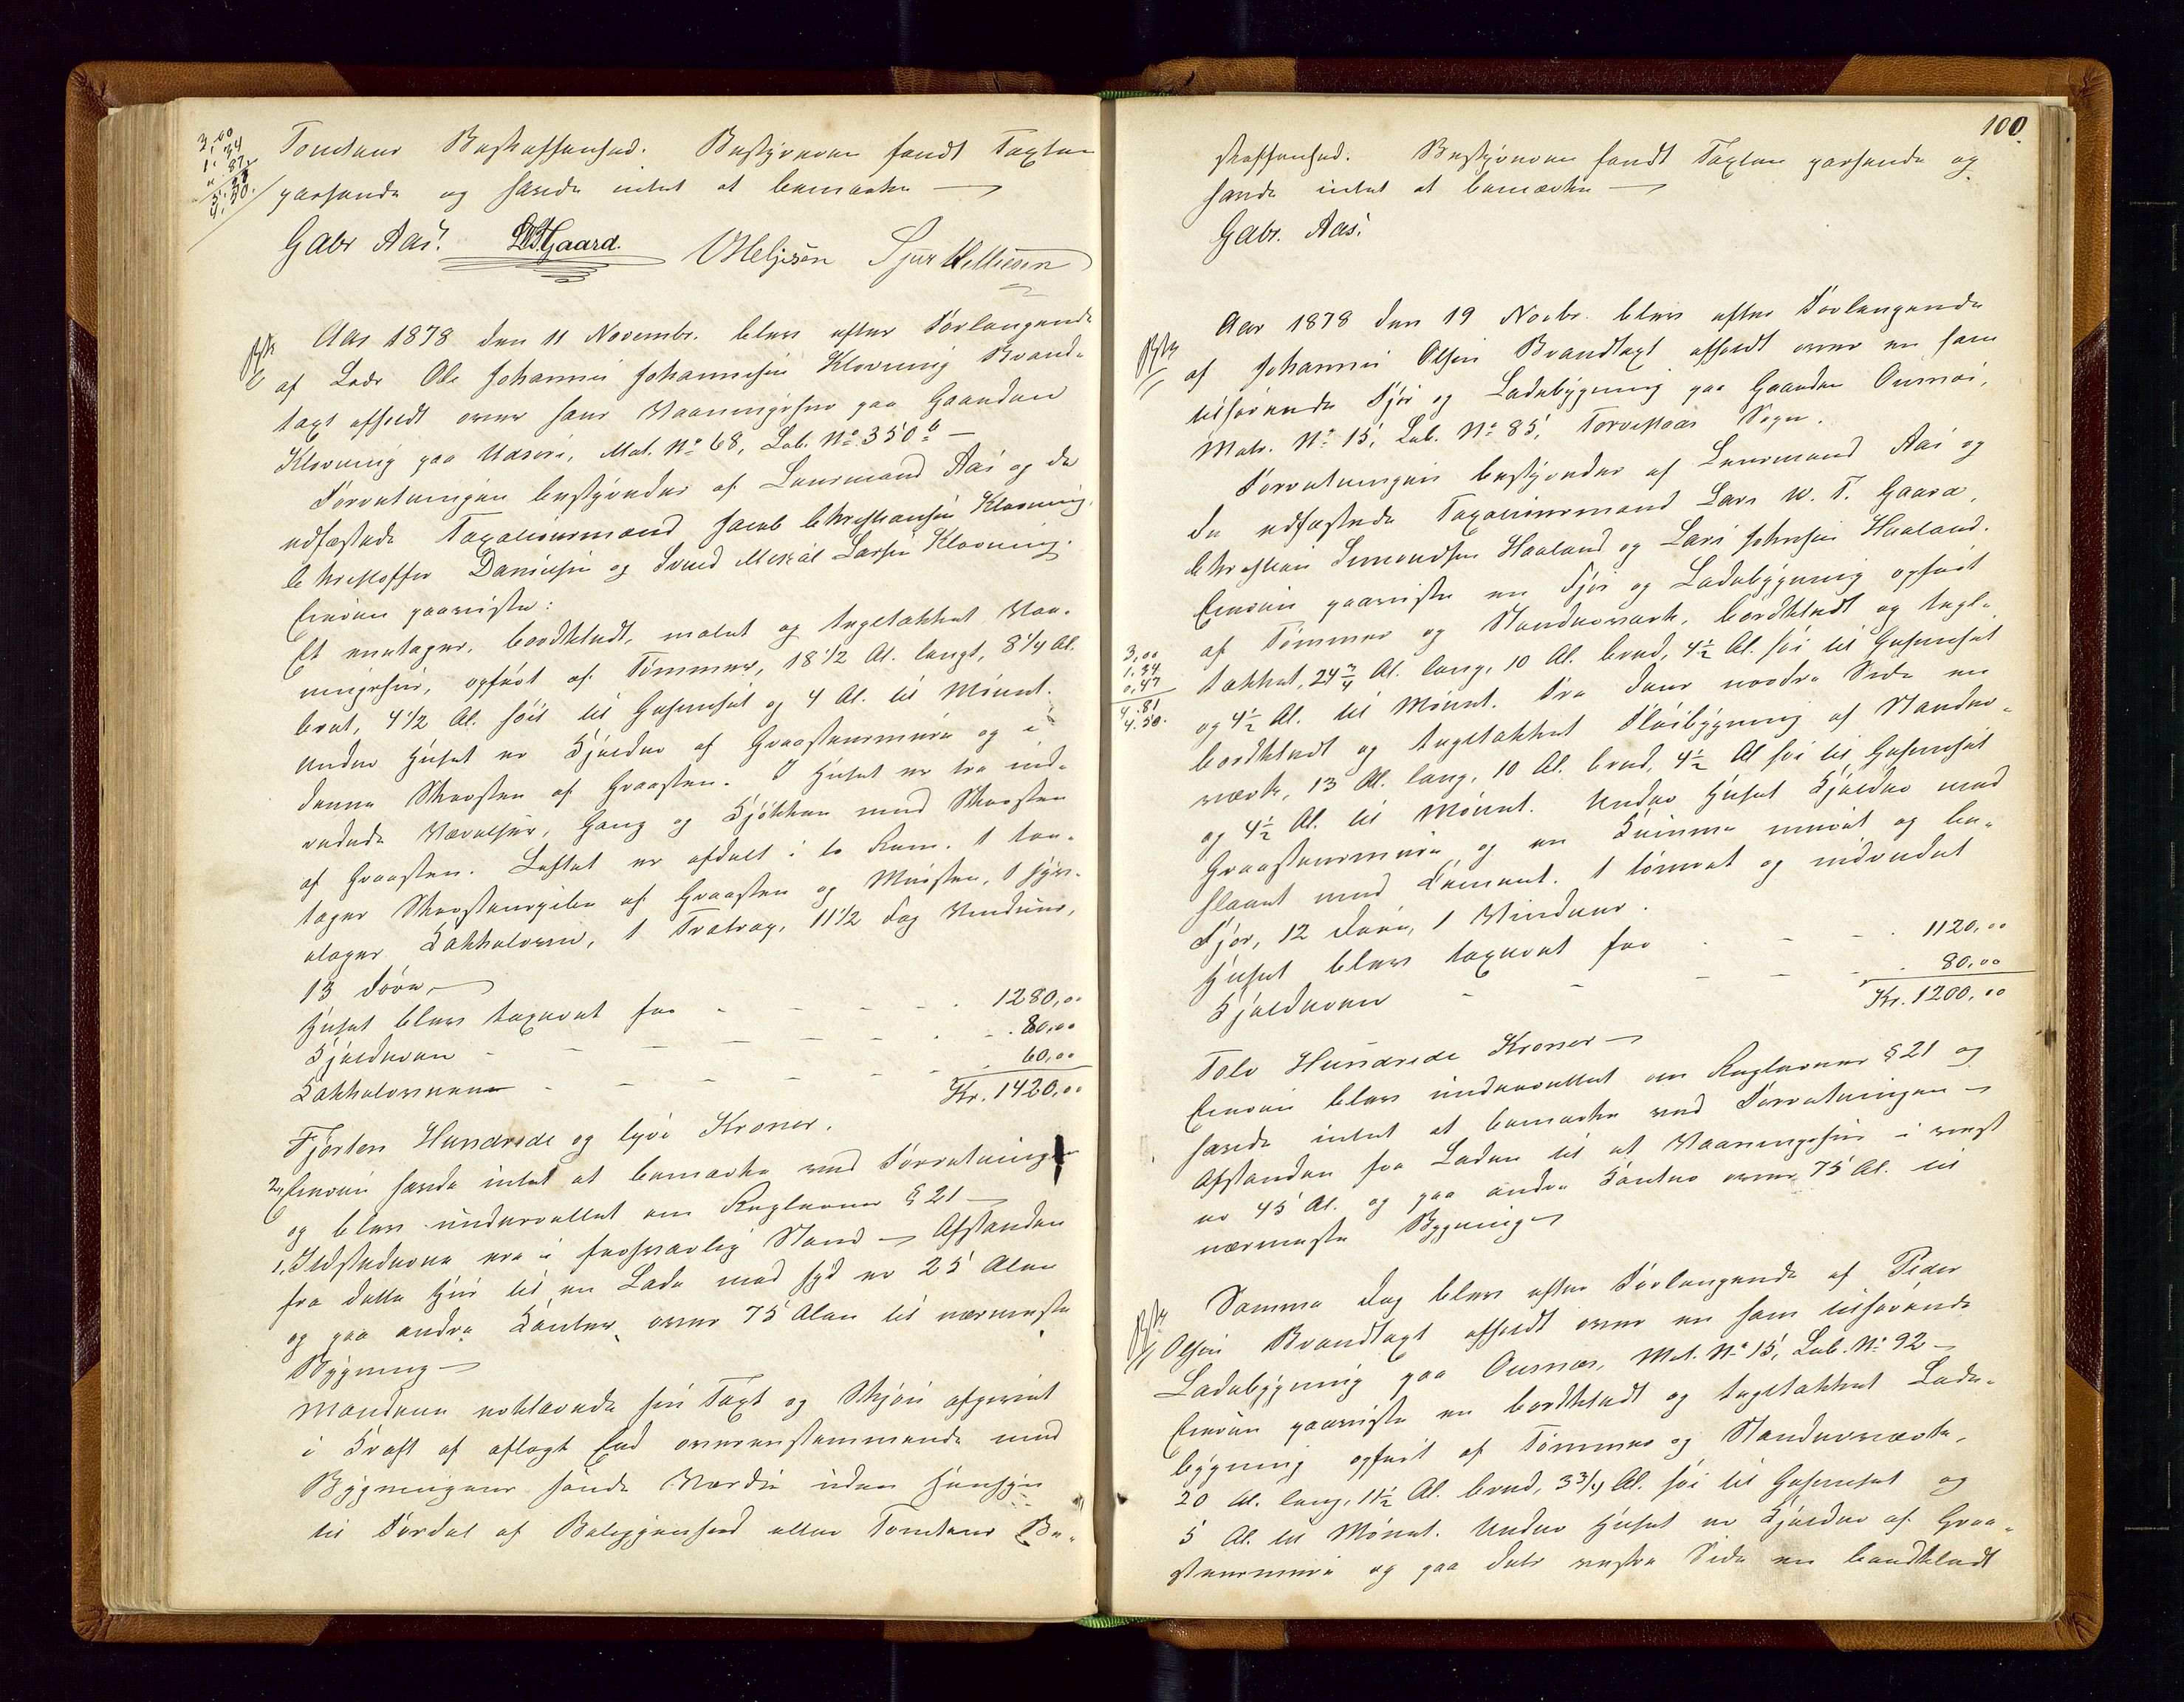 3,00
1,34
Tomtens Beskaffenhed. Bestyreren fandt Taxten
passende og havde intet at bemærke
Gabr Aas. LWTGaard. OHelgesen Sjur Mellesen
Aar 1878 den 11 Novembr. blev efter Forlangende
af Lods Ole Johannes Johannesen Klovning Brand-
taxt afholdt over hans Vaaningshus paa Gaarden
Klovning paa Udsire, Mat. No 68, Løb. No 350b —
Forretningen bestyredes af Lensmand Aas og de
edfæstede Taxationsmænd Jacob Christiansen Klovning,
Christoffer Danielsen og Svend Larsen Klovning.
Eieren paaviste:
Et enetages, bordklædt, malet og tegltækket Vaa-
ningshus, opført af Tømmer, 18 1/2 Al. langt, 8 1/4 Al.
bredt, 4 1/2 Al. høit til Gesimset og 4 Al. til Mønnet.
Under Huset er Kjælder af Graastensmure og i
denne Skorsten af Graasten. I Huset er tre ind-
redede Værelser, Gang og Kjøkken med Skorsten
af Graasten. Loftet er afdelt i to Rum. 1 toe-
tages Skorstenspibe af Graasten og Mursten, 1 fyr-
etages Kakkelovn, 1 Trætrap, 11 1/2 Fag Vinduer,
13 Døre,
Huset blev taxeret for - - - 1280,00
Kjælderen - - - 80,00
Kakkelovnen - - - 60,00
Kr. 1420,00
Fjorten Hundrede og tyve Kroner.
2, Eieren havde intet at bemærke ved Forretningen
og blev underrettet om Reglerne § 21 —
1, Ildstederne ere i forsvarlig Stand — Afstanden
fra dette Hus til en Lade mod Syd er 25 Alen
og paa andre Kanter over 75 Alen til nærmeste
Bygning —
Mændene erklærede sin Taxt og Skjøn afgivet
i Kraft af aflagt Eed overensstemmende med
Bygningens sande Værdi uden Hensyn
til Fordel af Beliggenhed eller Tomtens Be-
100
skaffenhed. Bestyreren fandt Taxten passende og
havde intet at bemærke —
Gabr. Aas.
Aar 1878 den 19 Novbr. blev efter Forlangende
af Johannes Olsen Brandtaxt afholdt over en ham
tilhørende Fjøs og Ladebygning paa Gaarden Ousnæs,
Matr. No 15, Løb. No 85, Torvestad Sogn.
Forretningen bestyredes af Lensmand Aas og
de edfæstede Taxationsmænd Lars W. T. Gaard,
Christian Simondsen Haaland og Lars Johnsen Haaland.
Eieren paaviste en Fjøs og Ladebygning opført
af Tømmer og Standerværk, bordklædt og tegl-
3,00
1,34
0,47
4.81
4.50.
tækket, 24 3/4 Al. lang, 10 Al. bred, 4 1/2 Al. høi til Gesimset
og 4 1/2 Al. til Mønnet. Fra dens nordre Side en
bordklædt og tegltækket Fløibygning af Stander-
værk, 13 Al. lang, 10 Al. bred, 4 1/2 Al høi til Gesimset
og 4 1/2 Al. til Mønnet. Under Huset Kjælder med
Graastensmure og en Kumme muret og be-
slaaet med Cement. 1 tømret og indredet
Fjøs, 12 Døre, 1 Vinduer.
Huset blev taxeret for - - - 1120,00
Kjælderen - - - 80,00
Kr. 1200,00
Tolv Hundrede Kroner —
Eieren blev underrettet om Reglerne § 21 og
havde intet at bemærke ved Forretningen —
Afstanden fra Laden til et Vaaningshus i vest
er 45 Al. og paa andre Kanter over 75 Al. til
nærmeste Bygning —
Samme Dag blev efter Forlangende af Peder
Olsen Brandtaxt afholdt over en ham tilhørende
Ladebygning paa Ousnæs, Mat. No 15, Løb. No 92 —
Eieren paaviste en bordklædt og tegltækket Lade-
bygning opført af Tømmer og Standerværk,
20 Al. lang, 11 1/2 Al. bred, 3 3/4 Al. høi til Gesimset og
5 Al. til Mønnet. Under Huset er Kjælder af Graa-
stensmure og paa dets vestre Side en bordklædt